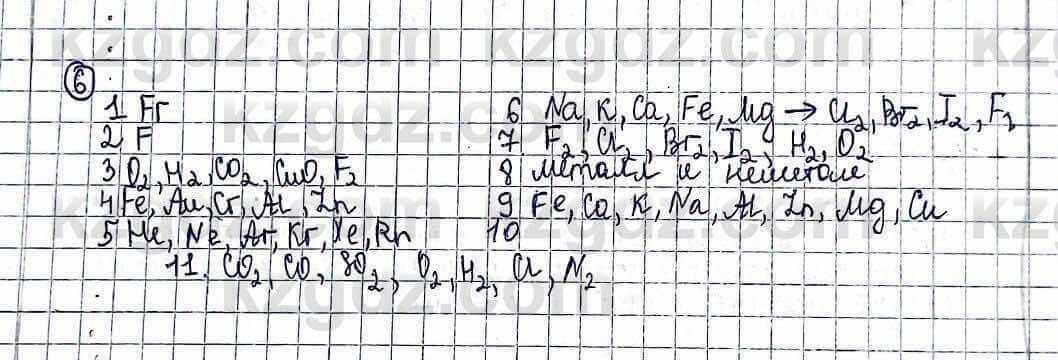 kzgdz.com
6
1 Fr
2 F
3 O2, H2, CO2, CuO, F2
4 Fe, Au, Cr, Al, Zn
5 He, Ne, Ar, Kr, Xe, Rn
6 Na, K, Ca, Fe, Mg → Cl2, Br2, I2, F2
7. F2, Cl2, Br2, I2, H2, O2
8 металл и неметалл
9 Fe, Ca, K, Na, Al, Zn, Mg, Cu
10
11. CO2, CO, SO2, O2, H2, Cl, N2